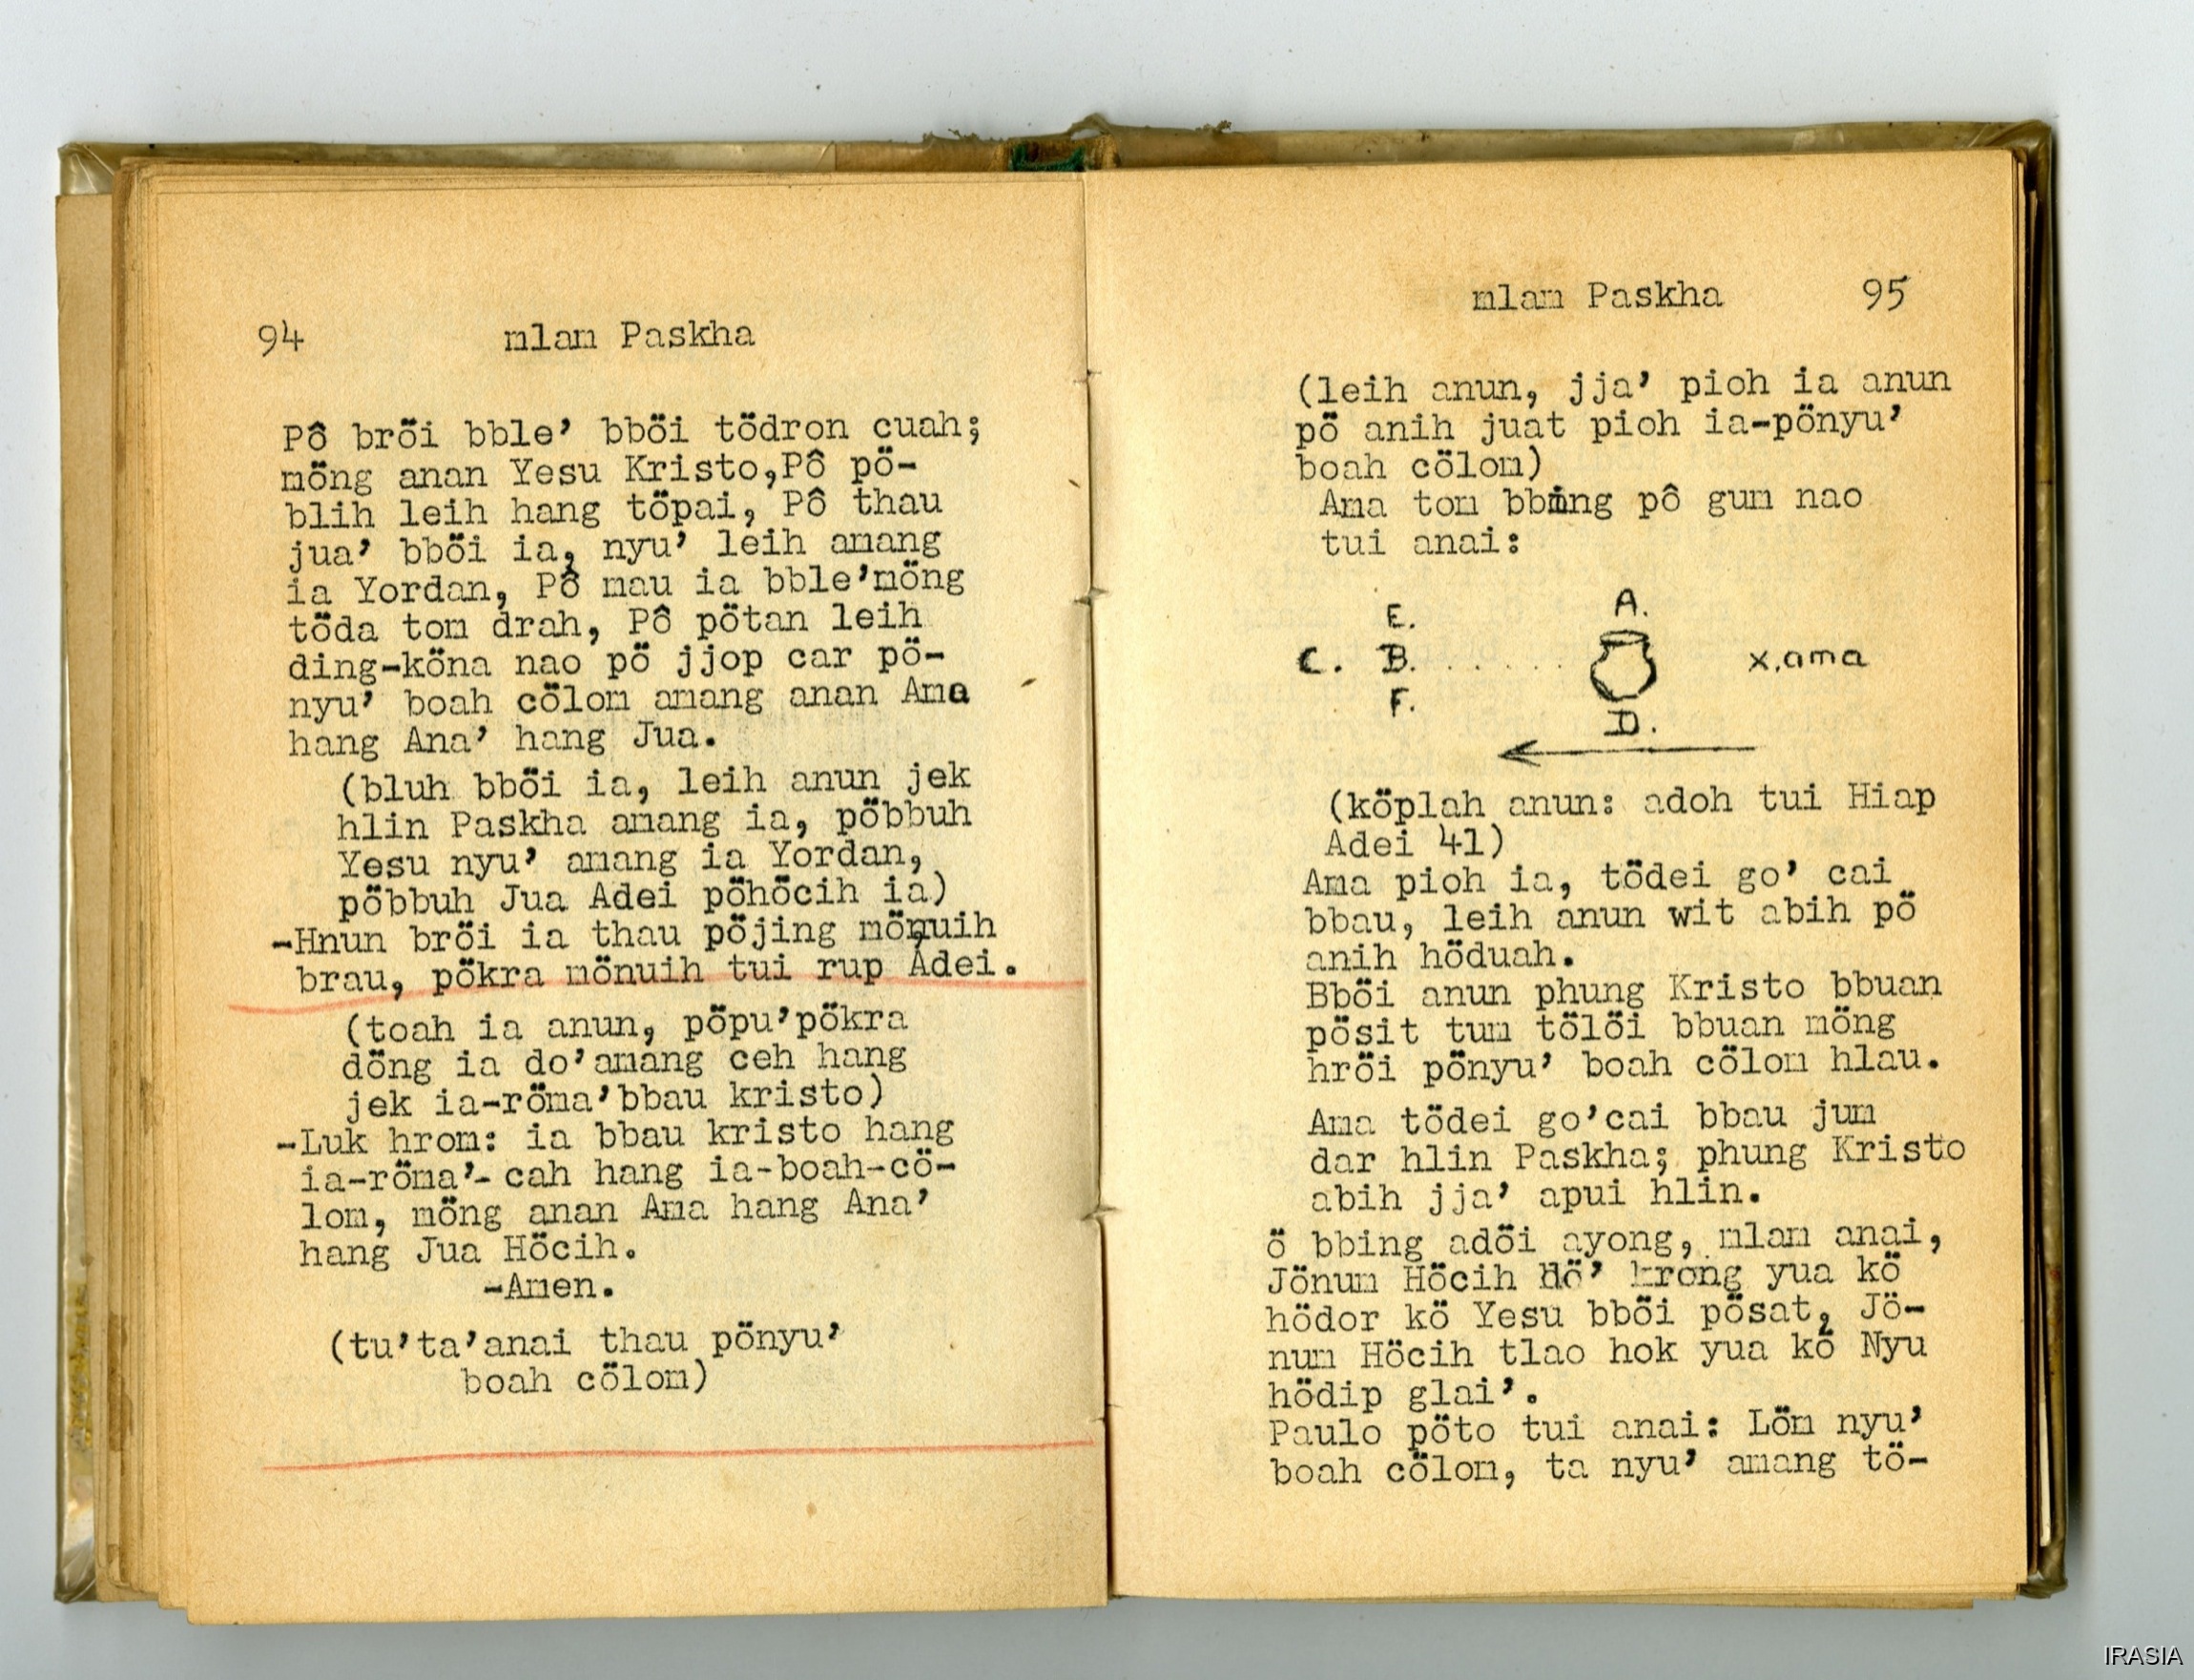 94 mlam Paskha
Pô brŏ̈i bble’ bbŏ̈i tŏ̈dron cuah;
mŏ̈ng anan Yesu Kristo,Pô pŏ̈-
blih leih hang tŏ̈pai, Pô thau
jua’ bbŏ̈i ia, nyu’ leih amang
ia Yordan, Pô mau ia bble’mŏ̈ng
tŏ̈da tom drah, Pô pŏ̈tan leih
ding-kŏ̈na nao pŏ̈ jjop car pŏ̈-
nyu’ boah cŏ̈lom amang anan Ama
hang Ana’ hang Jua.
(bluh bbŏ̈i ia, leih anun jek
hlin Paskha amang ia, pŏ̈bbuh
Yesu nyu’ amang ia Yordan,
pŏ̈bbuh Jua Adei pŏ̈hŏ̈cih ia)
-Hnun brŏ̈i ia thau pŏ̈jing mŏ̈nuih
brau, pŏ̈kra mŏ̈nuih tui rup Adei.
(toah ia anun, pŏ̈pu’pŏ̈kra
dŏ̈ng ia do’amang ceh hang
jek ia-rŏ̈ma’bbau kristo)
-Luk hrom: ia bbau kristo hang
ia-rŏ̈ma’-cah hang ia-boah-cŏ̈-
lom, mŏ̈ng anan Ama hang Ana’
hang Jua Hŏ̈cih.
-Amen.
(tu’ta’anai thau pŏ̈nyu’
boah cŏ̈lom)
mlam Paskha 95
(leih anun, jja’ pioh ia anun
pŏ̈ anih juat pioh ia-pŏ̈nyu’
boah cŏ̈lom)
Ama tom bbing pô gum nao
tui anai:
E. A.
C. B. ...... x.ama
F.
D.
(kŏ̈plah anun: adoh tui Hiap
Adei 41)
Ama pioh ia, tŏ̈dei go’ cai
bbau, leih anun wit abih pŏ̈
anih hŏ̈duah.
Bbŏ̈i anun phung Kristo bbuan
pŏ̈sit tum tŏ̈lŏ̈i bbuan mŏ̈ng
hrŏ̈i pŏ̈nyu’ boah cŏ̈lom hlau.
Ama tŏ̈dei go’cai bbau jum
dar hlin Paskha; phung Kristo
abih jja’ apui hlin.
ŏ̈ bbing adŏ̈i ayong, mlam anai,
Jŏ̈num Hŏ̈cih dŏ̈’ krong yua kŏ̈
hŏ̈dor kŏ̈ Yesu bbŏ̈i pŏ̈sat, Jŏ̈-
num Hŏ̈cih tlao hok yua kŏ̈ Nyu
hŏ̈dip glai’.
Paulo pŏ̈to tui anai: Lŏ̈m nyu’
boah cŏ̈lom, ta nyu’ amang tŏ̈-
IRASIA